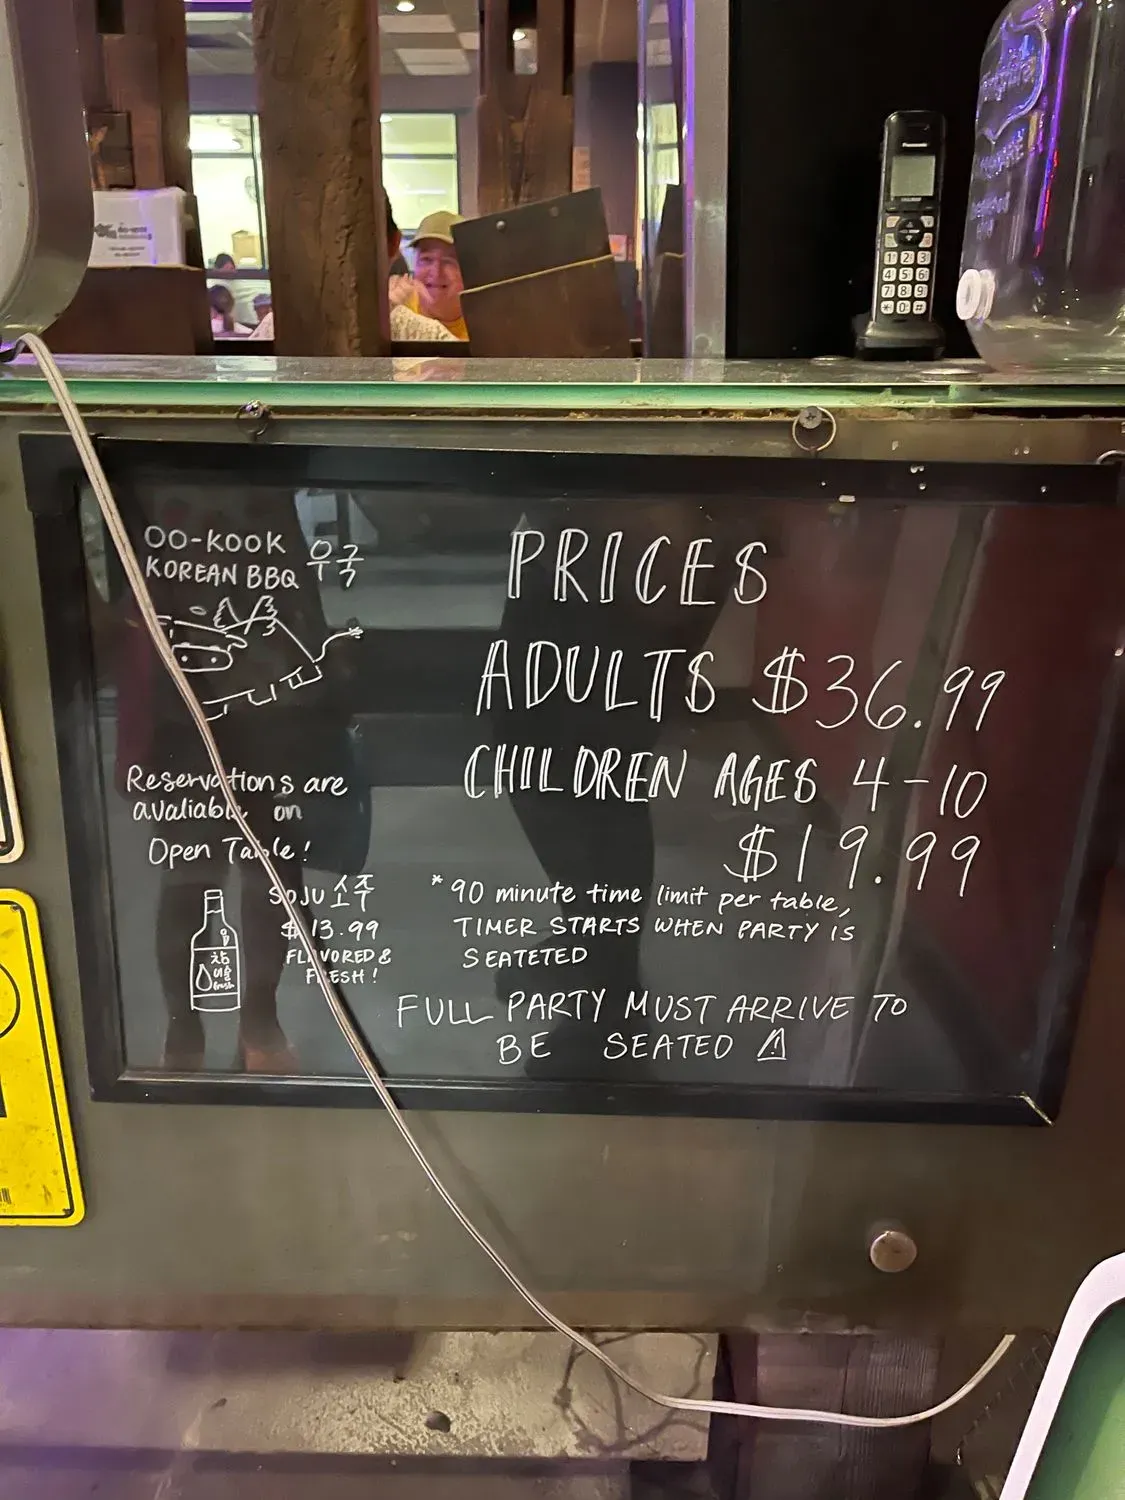 OO-KOOK
KOREAN BBQ 우국
Reservations are
avaliable on
Open Table!
SOJU 소주
$13.99
FLAVORED &
FRESH!
참
이슬
fresh
PRICES
ADULTS $36.99
CHILDREN AGES 4-10
$19.99
* 90 minute time limit per table,
TIMER STARTS WHEN PARTY IS
SEATETED
FULL PARTY MUST ARRIVE TO
BE SEATED ⚠
Panasonic
1 2 3
4 5 6
7 8 9
* 0 #